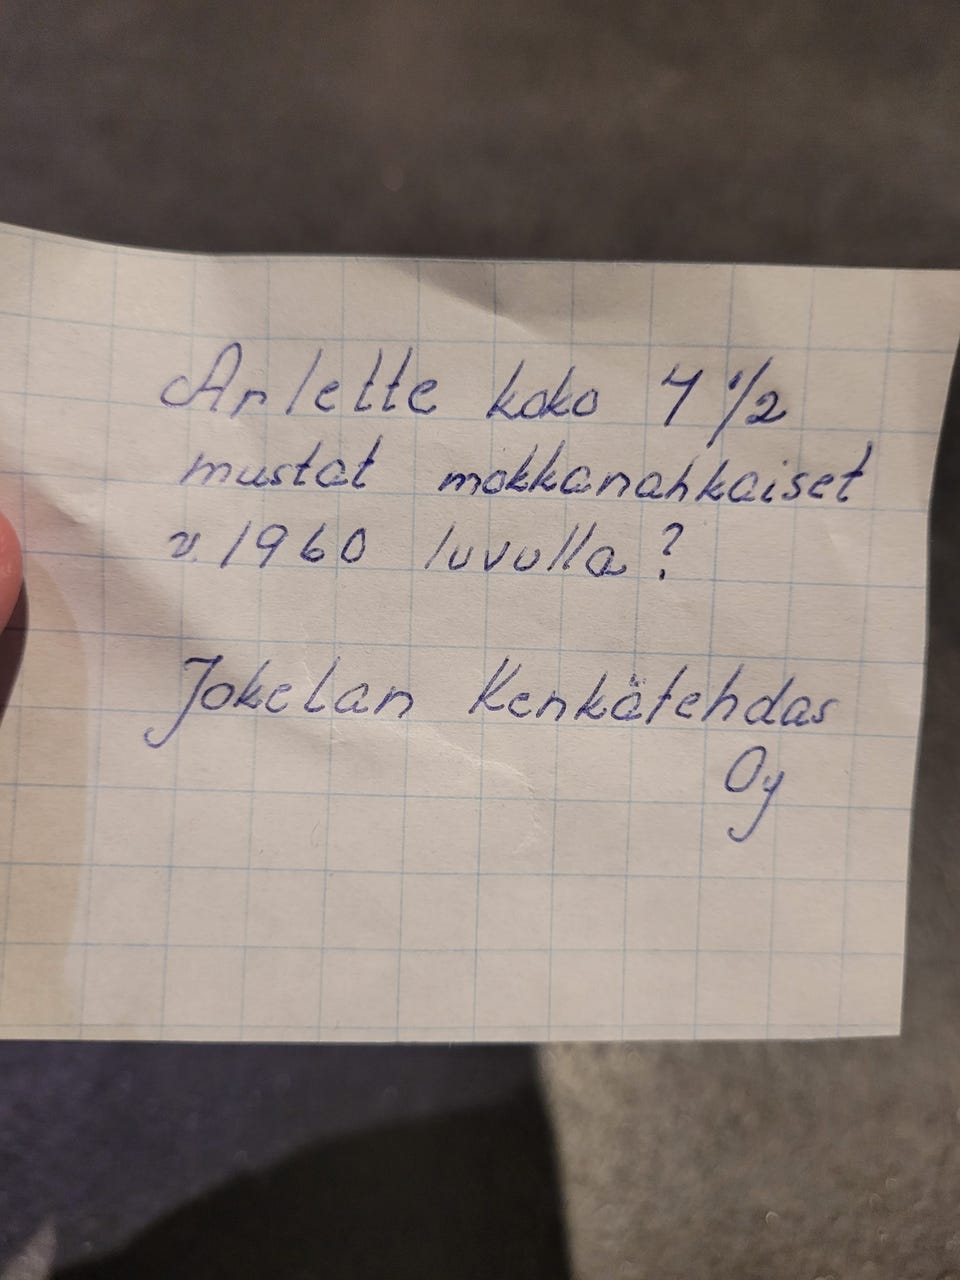 Arlette koko 4 1/2
mustat mokkanahkaiset
v. 1960 luvulla?
Jokelan Kenkätehdas
Oy